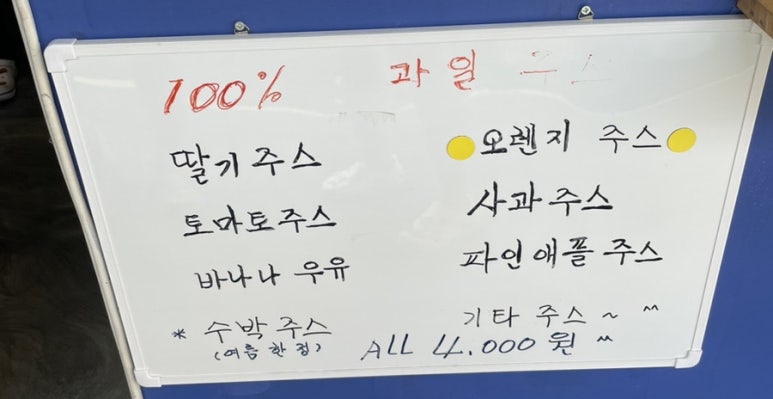 100% 과일 주스
딸기주스 오렌지 주스
토마토주스 사과주스
바나나 우유 파인애플 주스
* 수박주스 기타 주스~ ^^
(여름한정) ALL 4.000원 ^^